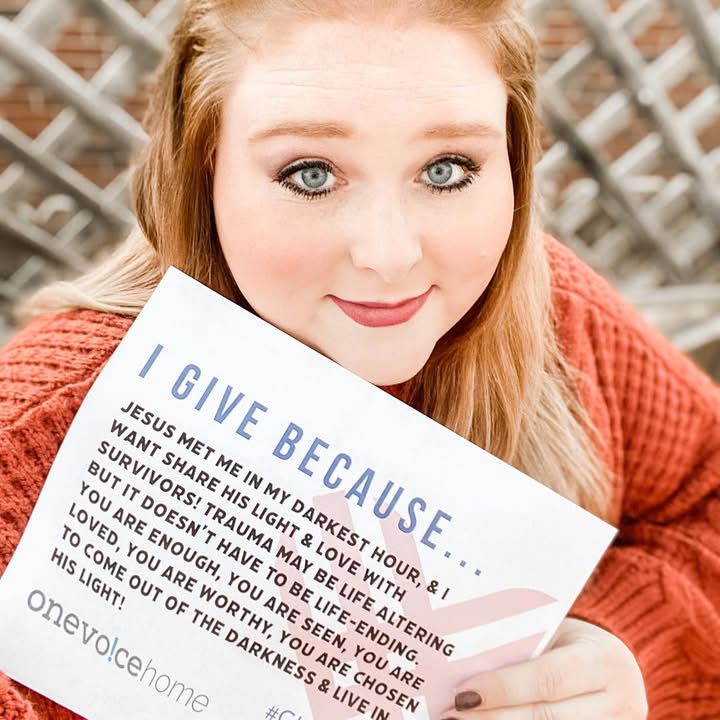 I GIVE BECAUSE...
JESUS MET ME IN MY DARKEST HOUR, & I
WANT SHARE HIS LIGHT & LOVE WITH
SURVIVORS! TRAUMA MAY BE LIFE ALTERING
BUT IT DOESN'T HAVE TO BE LIFE-ENDING.
YOU ARE ENOUGH, YOU ARE SEEN, YOU ARE
LOVED, YOU ARE WORTHY, YOU ARE CHOSEN
TO COME OUT OF THE DARKNESS & LIVE IN
HIS LIGHT!
onevo!cehome